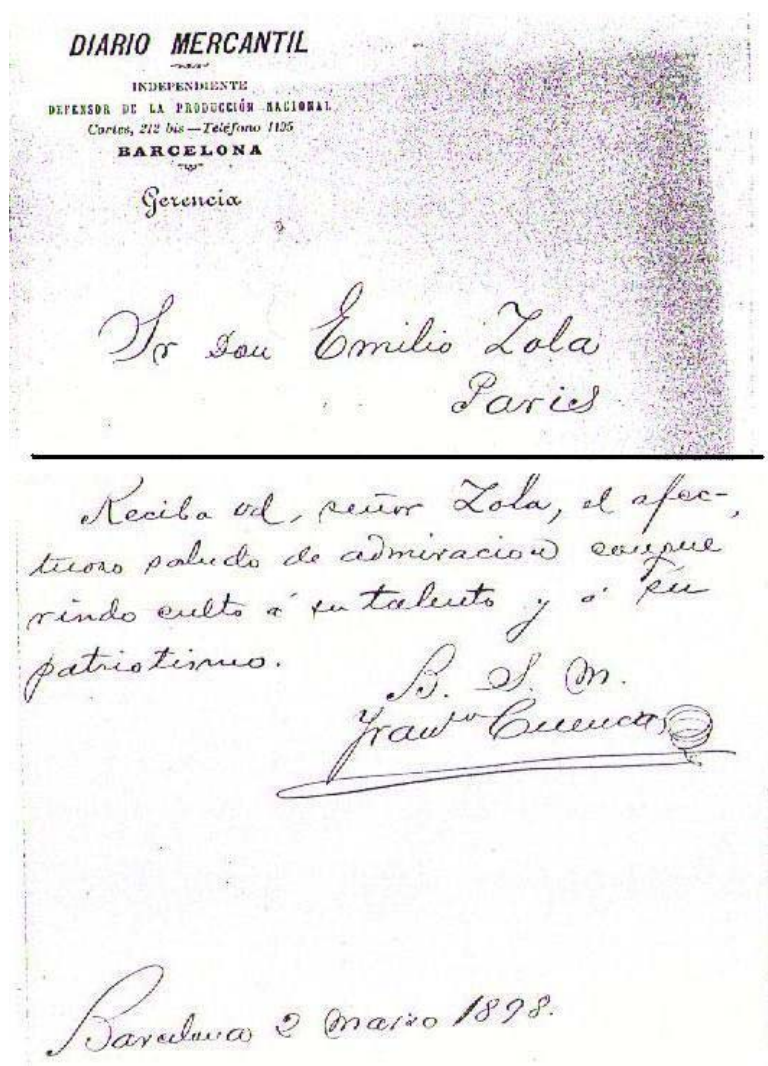 DIARIO MERCANTIL
INDEPENDIENTE
DEFENSOR DE LA PRODUCCIÓN NACIONAL
Cortes, 212 bis — Teléfono 1195
BARCELONA
Gerencia
Sr Don Emilio Zola
Paris
Reciba vd, señor Zola, el afec-
tuoso saludo de admiracion conque
rindo culto á su talento y á su
patriotismo.
B. S. M.
Cuenca
Barcelona 2 Marzo 1898.